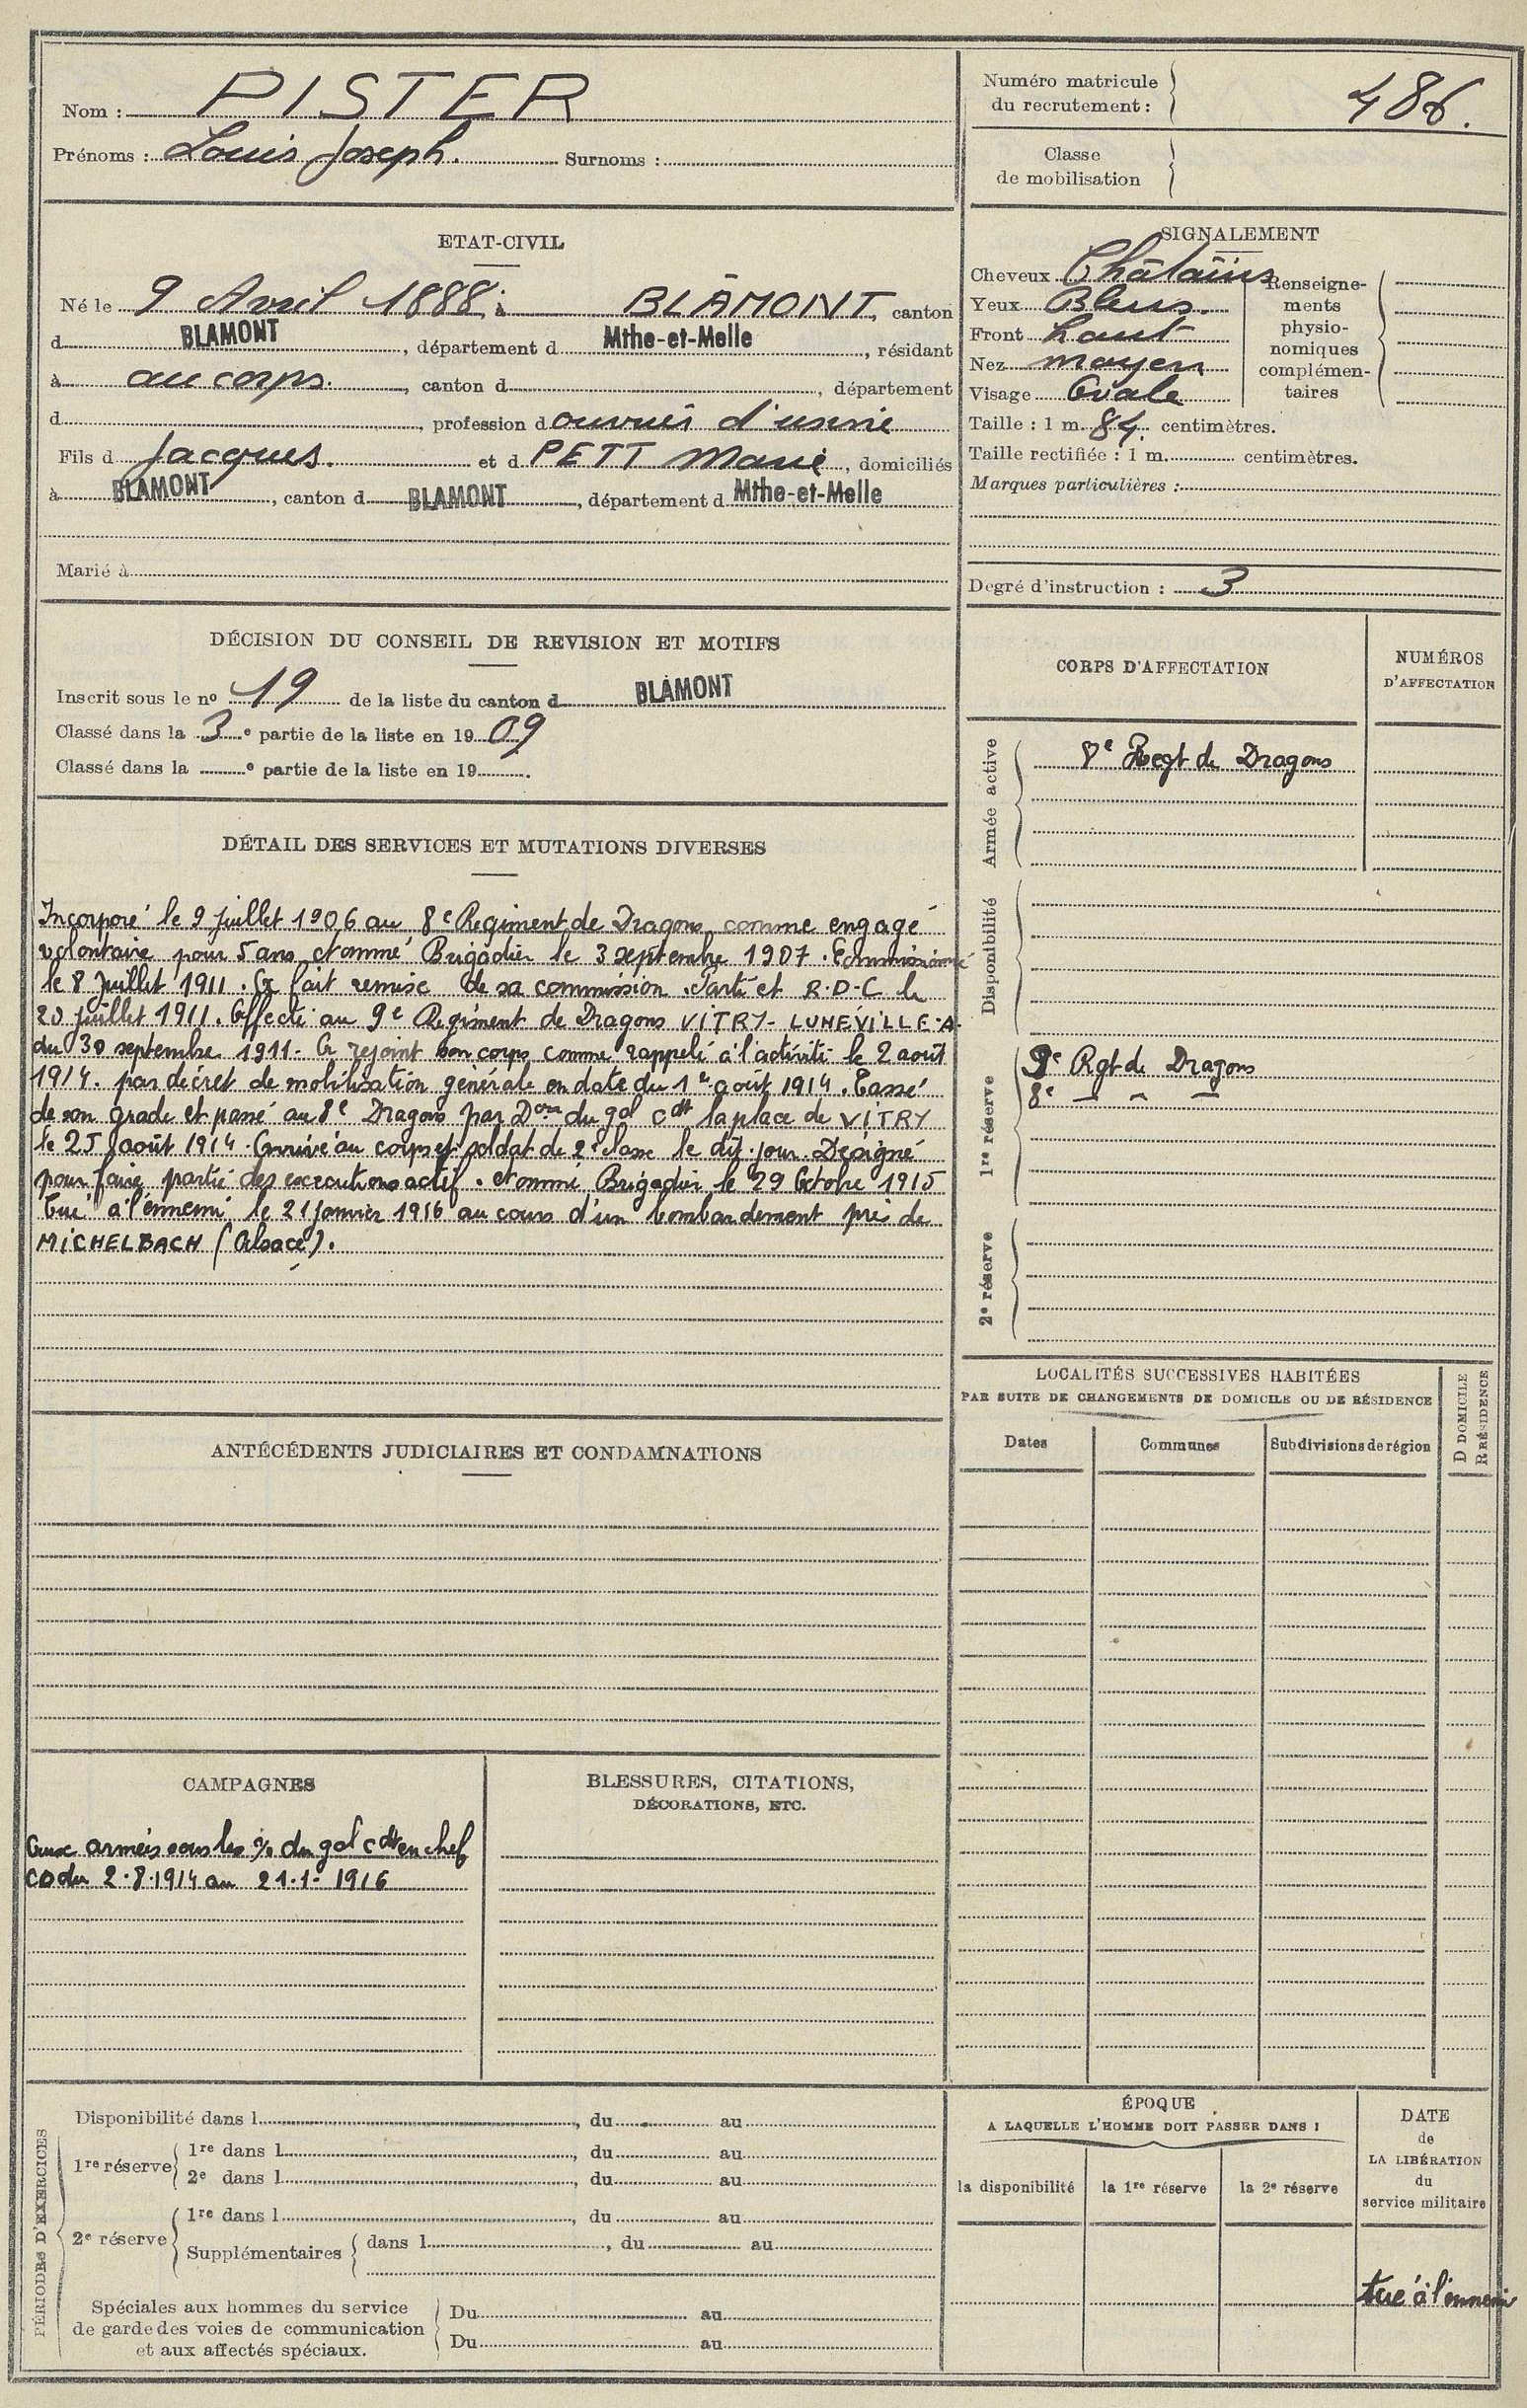 Nom : PISTER
Prénoms : Louis Joseph. Surnoms :
Numéro matricule
du recrutement : 486.
Classe
de mobilisation
ETAT-CIVIL
Né le 9 Avril 1888 à BLÂMONT, canton
d BLAMONT, département d Mthe-et-Melle, résidant
à au corps., canton d, département
d, profession d ouvrier d'usine
Fils d Jacques. et d PETT Marie, domiciliés
à BLAMONT, canton d BLAMONT, département d Mthe-et-Melle
Marié à
SIGNALEMENT
Cheveux Châtains
Yeux Bleus.
Front haut
Nez moyen
Visage Ovale
Renseigne-
ments
physio-
nomiques
complémen-
taires
Taille : 1 m. 84. centimètres.
Taille rectifiée : 1 m. centimètres.
Marques particulières :
Degré d'instruction : 3
DÉCISION DU CONSEIL DE REVISION ET MOTIFS
Inscrit sous le nº 19 de la liste du canton d BLAMONT
Classé dans la 3e partie de la liste en 1909
Classé dans la e partie de la liste en 19 .
DÉTAIL DES SERVICES ET MUTATIONS DIVERSES
Incorporé le 9 juillet 1906 au 8e Regiment de Dragons comme engagé
volontaire pour 5 ans. Nommé Brigadier le 3 septembre 1907. Commissionné
le 8 juillet 1911. A fait remise de sa commission. Parti et R.D.C le
20 juillet 1911. Affecté au 9e Régiment de Dragons VITRY-LUNÉVILLE. A.
du 30 septembre 1911. A rejoint son corps comme rappelé à l'activité le 2 août
1914. par décret de mobilisation générale en date du 1er août 1914. Cassé
de son grade et passé au 8e Dragons par Don du gal cdt la place de VITRY
le 25 août 1914. Arrivé au corps et soldat de 2e classe le dit jour. Désigné
pour faire partie des actif. Nommé Brigadier le 29 Octobre 1915
Tué à l'ennemi le 21 janvier 1916 au cours d'un bombardement près de
MICHELBACH (Alsace).
CORPS D'AFFECTATION
NUMÉROS
D'AFFECTATION
Armée active
8e Regt de Dragons
Disponibilité
1re réserve
9e Rgt de Dragons
8e — — —
2e réserve
LOCALITÉS SUCCESSIVES HABITÉES
PAR SUITE DE CHANGEMENTS DE DOMICILE OU DE RÉSIDENCE
D DOMICILE
R RÉSIDENCE
Dates Communes Subdivisions de région
ANTÉCÉDENTS JUDICIAIRES ET CONDAMNATIONS
CAMPAGNES
Aux armées sous les % du gal cdt en chef
CD du 2.8.1914 au 21.1.1916
BLESSURES, CITATIONS,
DÉCORATIONS, ETC.
PÉRIODES D'EXERCICES
Disponibilité dans l, du au
1re réserve
1re dans l, du au
2e dans l, du au
2e réserve
1re dans l, du au
Supplémentaires dans l, du au
Spéciales aux hommes du service
de garde des voies de communication
et aux affectés spéciaux.
Du au
Du au
ÉPOQUE
A LAQUELLE L'HOMME DOIT PASSER DANS :
la disponibilité la 1re réserve la 2e réserve
DATE
de
LA LIBÉRATION
du
service militaire
tué à l'ennemi